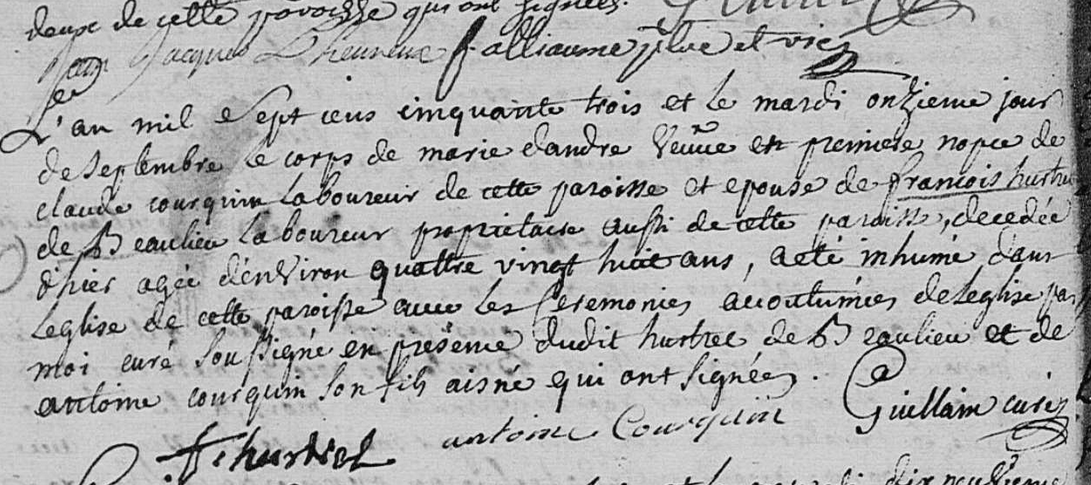 deux de cette paroisse qui ont signées.
Jean Jacques Lheureux f. alliaume ptre et vic
L'an mil Sept cens cinquante trois et le mardi onzieme jour
de septembre le corps de marie dandre Veuve en premiere nopce de
claude courquin laboureur de cette paroisse et epouse de francois hurtrel
de Beaulieu laboureur proprietaire aussi de cette paroisse, decedée
d'hier agée d'enViron quattre vingt huit ans, a eté inhumé dans
Leglise de cette paroisse avec les Ceremonies acoutumées de Leglise par
moi curé soussigné en présence dudit hurtrel de Beaulieu et de
antoine courquin son fils aisné qui ont signées.
Guillain curé
f hurtrel antoine Courquin